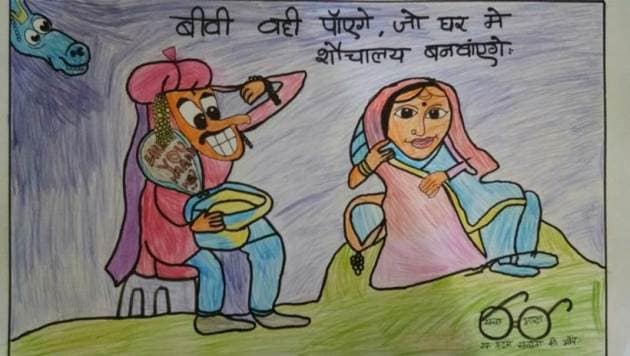 बीवी वही पॉएगे, जो घर मे
शौचालय बनवांएगे:
YOU
स्वच्छ भारत
एक कदम स्वच्छता की ओर